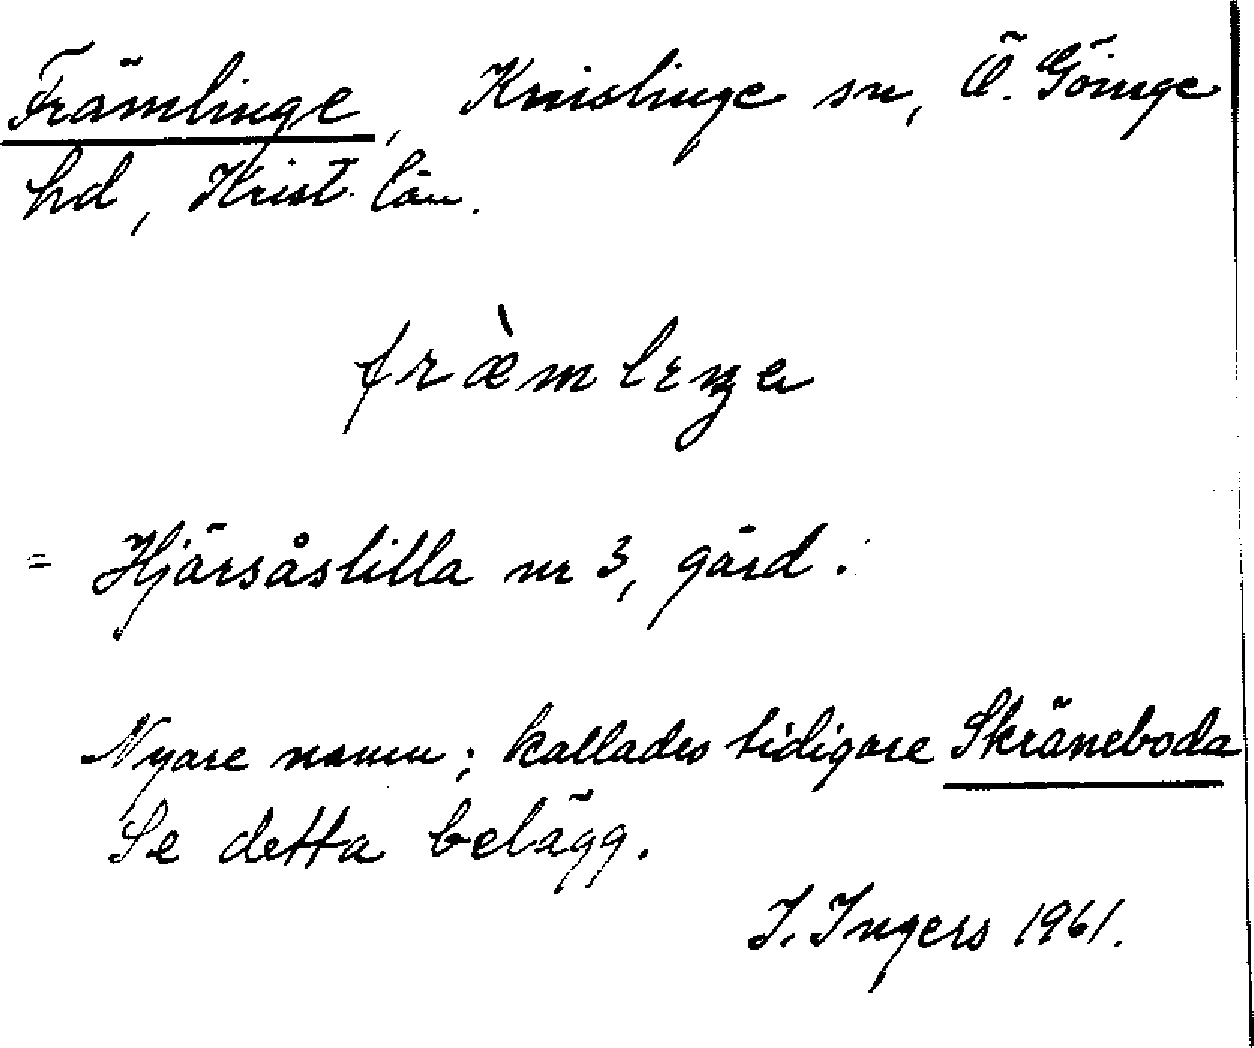 Främlinge, Knislinge sn, Ö. Göinge
hd, Krist. län.
fræ̀mlɩŋa
= Hjärsåslilla nr 3, gård.
Nyare namn; kallades tidigare Skräneboda
Se detta belägg.
I. Ingers 1961.